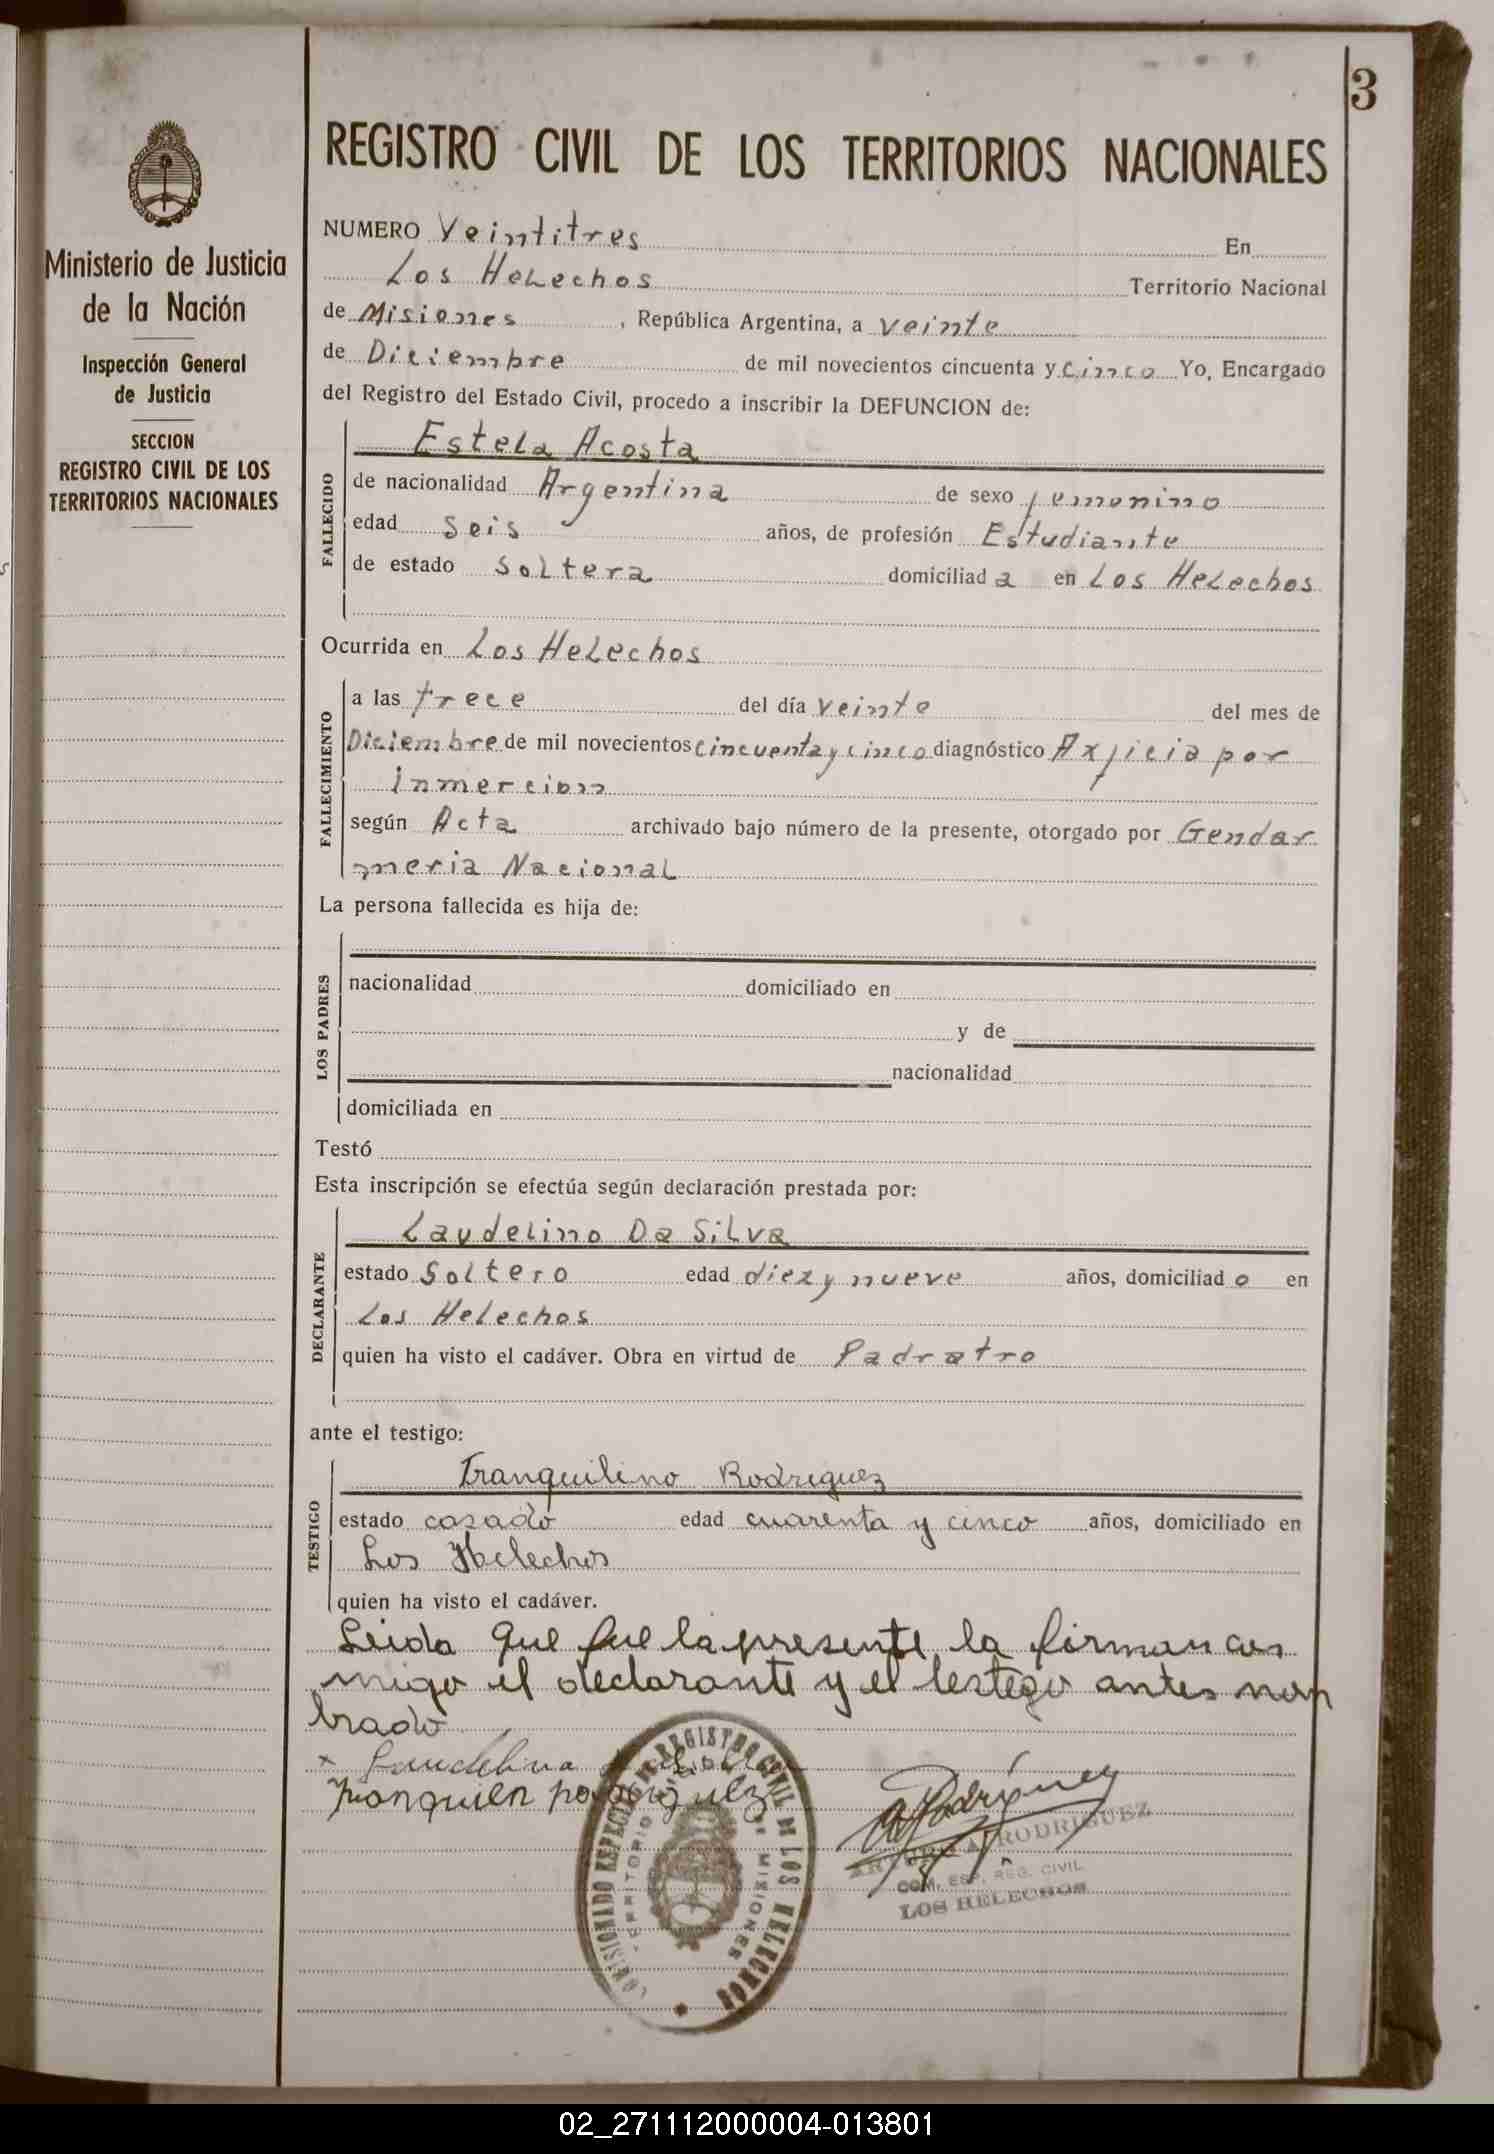 3
Ministerio de Justicia
de la Nación
Inspección General
de Justicia
SECCION
REGISTRO CIVIL DE LOS
TERRITORIOS NACIONALES
REGISTRO CIVIL DE LOS TERRITORIOS NACIONALES
NUMERO Veintitres En
Los Helechos Territorio Nacional
de Misiones, República Argentina, a veinte
de Diciembre de mil novecientos cincuenta y cinco Yo, Encargado
del Registro del Estado Civil, procedo a inscribir la DEFUNCION de:
FALLECIDO
Estela Acosta
de nacionalidad Argentina de sexo femenino
edad Seis años, de profesión Estudiante
de estado Soltera domiciliad a en Los Helechos
Ocurrida en Los Helechos
FALLECIMIENTO
a las trece del día veinte del mes de
Diciembre de mil novecientos cincuenta y cinco diagnóstico Axficia por
inmercion
según Acta archivado bajo número de la presente, otorgado por Gendar
meria Nacional
La persona fallecida es hija de:
LOS PADRES
nacionalidad domiciliado en
y de
nacionalidad
domiciliada en
Testó
Esta inscripción se efectúa según declaración prestada por:
DECLARANTE
Laudelino Da Silva
estado Soltero edad diez y nueve años, domiciliad o en
Los Helechos
quien ha visto el cadáver. Obra en virtud de Padratro
ante el testigo:
TESTIGO
Tranquilino Rodriguez
estado casado edad cuarenta y cinco años, domiciliado en
Los Helechos
quien ha visto el cadáver.
Leida que fue la presente la firman con
migo el declarante y el testigo antes nom
brado
COMISIONADO ESPECIAL DE REGISTRO CIVIL DE LOS HELECHOS
TERRITORIO DE MISIONES
A. Rodríguez
ARTURO A. RODRIGUEZ
COM. ESP. REG. CIVIL
LOS HELECHOS
02_271112000004-013801